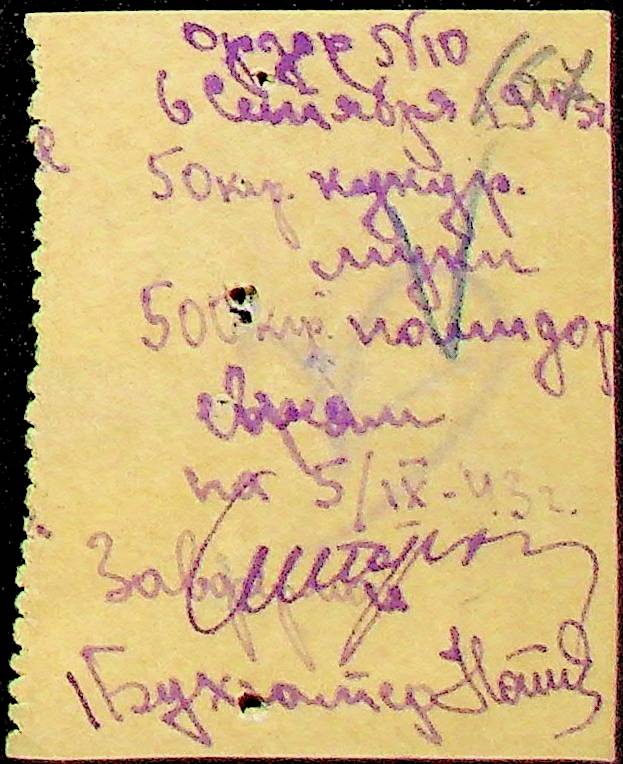 Ордер N10
6 Сентября 1943г
50 кгр. кукур.
муки
500 кгр. помидор
на 5/IX-43г.
Бухгалтер